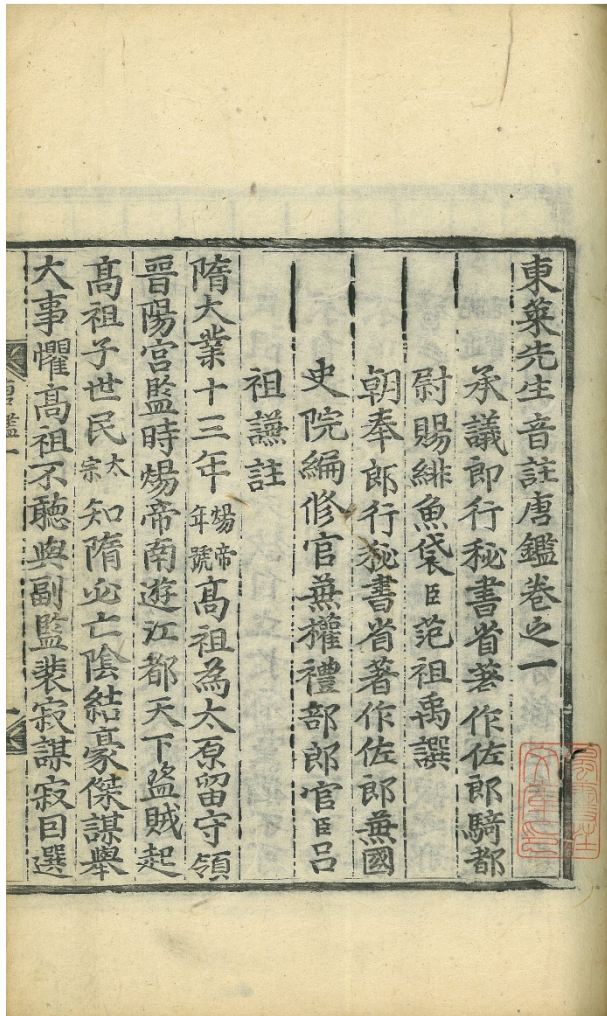 東萊先生音註唐鑑卷之一
承議郎行秘書省著作佐郎騎都
尉賜緋魚袋臣范祖禹譔
朝奉郎行秘書省著作佐郎兼國
史院編修官兼權禮部郎官臣呂
祖謙註
隋大業十三年煬帝年號高祖為太原留守領
晉陽宮監時煬帝南遊江都天下盜賊起
高祖子世民太宗知隋必亡陰結豪傑謀舉
大事懼高祖不聽與副監裴寂謀寂因選